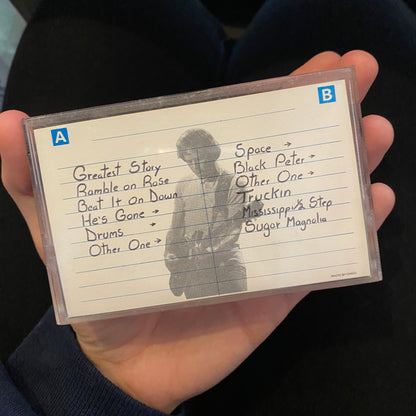 A
Greatest Story
Ramble on Rose
Beat It on Down
He's Gone →
Drums →
Other One →
B
Space →
Black Peter →
Other One →
Truckin
Mississippi ½ Step
Sugar Magnolia